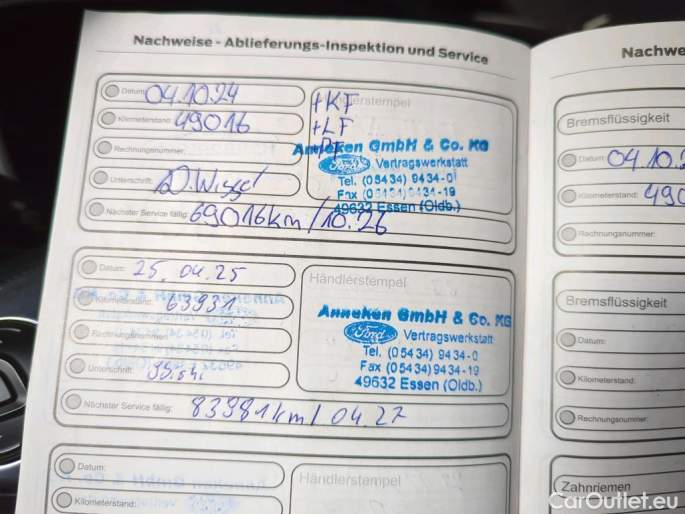 Nachweise - Ablieferungs-Inspektion und Service
Datum: 04.10.24
Kilometerstand: 49016
Rechnungsnummer:
Unterschrift:
Nächster Service fällig: 69016km/10.26
Händlerstempel
+KF
+LF
Anneken GmbH & Co. KG
Ford Vertragswerkstatt
Tel. (05434) 9434-0
Fax (05434) 9434-19
49632 Essen (Oldb.)
Datum: 25.04.25
Kilometerstand: 63931
Rechnungsnummer:
Unterschrift:
Nächster Service fällig: 83981km/04.27
Händlerstempel
Anneken GmbH & Co. KG
Ford Vertragswerkstatt
Tel. (05434) 9434-0
Fax (05434) 9434-19
49632 Essen (Oldb.)
Datum:
Kilometerstand:
Händlerstempel
Nachwe
Bremsflüssigkeit
Datum: 04.10.2
Kilometerstand: 490
Rechnungsnummer:
Bremsflüssigkeit
Datum:
Kilometerstand:
Rechnungsnummer:
Zahnriemen
CarOutlet.eu